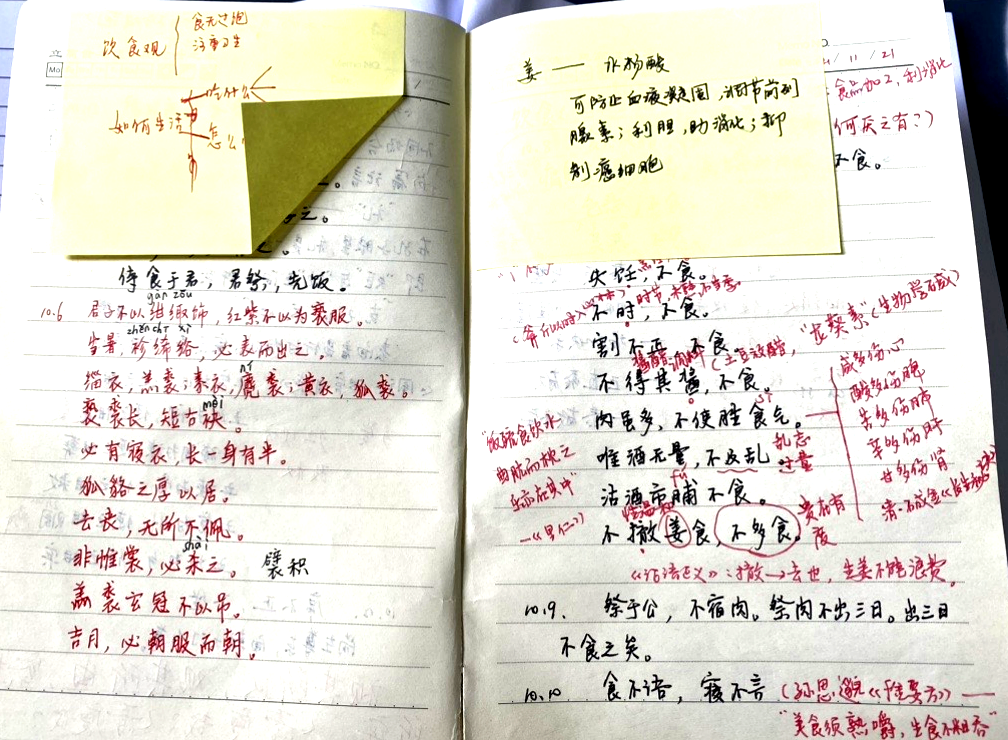 饮食观
食无过饱
注重卫生
如何生活
吃什么
怎么
之。
侍食于君，君祭，先饭。
gàn zōu
10.6 君子不以绀緅饰，红紫不以为亵服。
zhěn chī xì
当暑，袗絺绤，必表而出之。
缁衣，羔裘；素衣，麑裘；黄衣，狐裘。
ní
亵裘长，短右袂。
mèi
必有寝衣，长一身有半。
狐貉之厚以居。
去丧，无所不佩。
非帷裳，必杀之。 襞积
shài
羔裘玄冠不以吊。
吉月，必朝服而朝。
姜 —— 水杨酸
可防止血液凝固，调节前列
腺素；利胆，助消化；抑
制癌细胞
11/21
食品加工，利消化
何厌之有？）
不食。
失饪，不食。
不时，不食。
割不正，不食。
"龙葵素"（生物学不咸）
不得其酱，不食。
肉虽多，不使胜食气。
sì
唯酒无量，不及乱
乱志
过量
沽酒市脯不食。
fǔ
不撤姜食，不多食。
贵在有
度
"饭疏食饮水
曲肱而枕之
乐亦在其中"
—《里仁》
咸多伤心
酸多伤脾
苦多伤肺
辛多伤肝
甘多伤肾
《论语正义》：撤→去也，生姜不能浪费。
10.9. 祭于公，不宿肉。祭肉不出三日。出三日
不食之矣。
10.10 食不语，寝不言（孙思邈《千金要方》——
"美食须熟嚼，生食不粗吞"